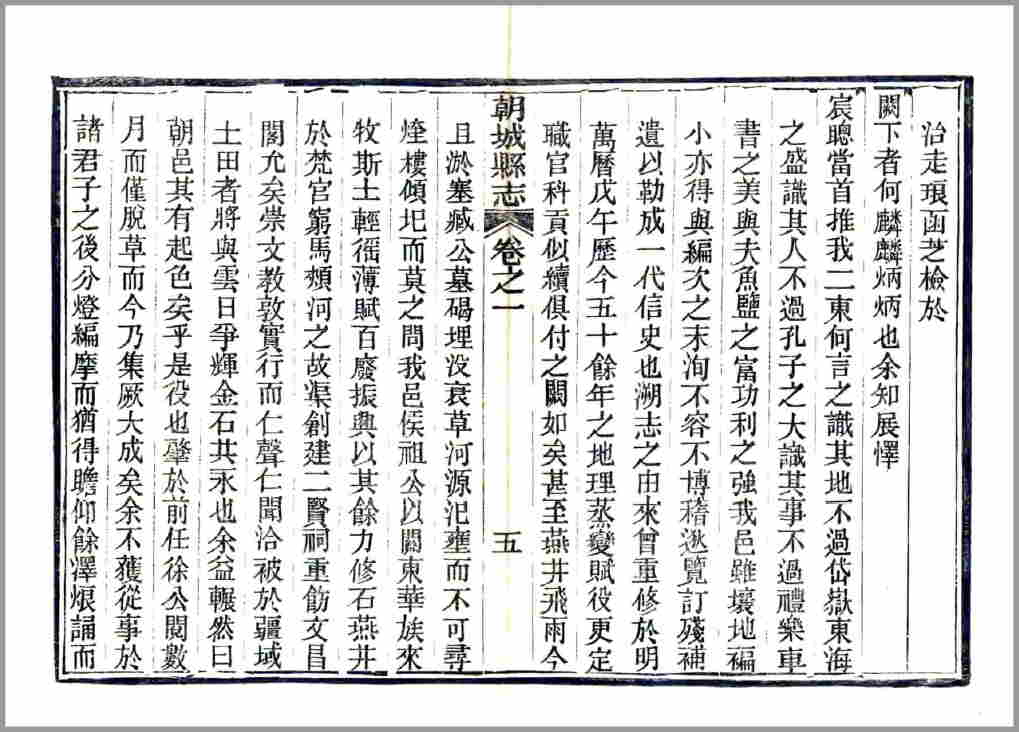 治走琅函芝檢於
闕下者何麟麟炳炳也余知展懌
宸聰當首推我二東何言之識其地不過岱嶽東海
之盛識其人不過孔子之大識其事不過禮樂車
書之美與夫魚鹽之富功利之強我邑雖壤地褊
小亦得與編次之末洵不容不博稽逖覽訂殘補
遺以勒成一代信史也溯志之由來曾重修於明
萬曆戊午歷今五十餘年之地理蒸變賦役更定
職官科貢似續俱付之闕如矣甚至燕井飛雨今
朝城縣志 卷之一 五
且淤塞臧公墓碣埋没衰草河源汜壅而不可尋
煙樓傾圯而莫之問我邑侯祖公以關東華族來
牧斯土輕徭薄賦百廢振興以其餘力修石燕井
於梵宮窮馬頰河之故渠創建二賢祠重飭文昌
閣允矣崇文教敦實行而仁聲仁聞洽被於疆域
土田者將與雲日爭輝金石共永也余益囅然曰
朝邑其有起色矣乎是役也肇於前任徐公閱數
月而僅脫草而今乃集厥大成矣余不獲從事於
諸君子之後分燈編摩而猶得瞻仰餘澤煨誦而